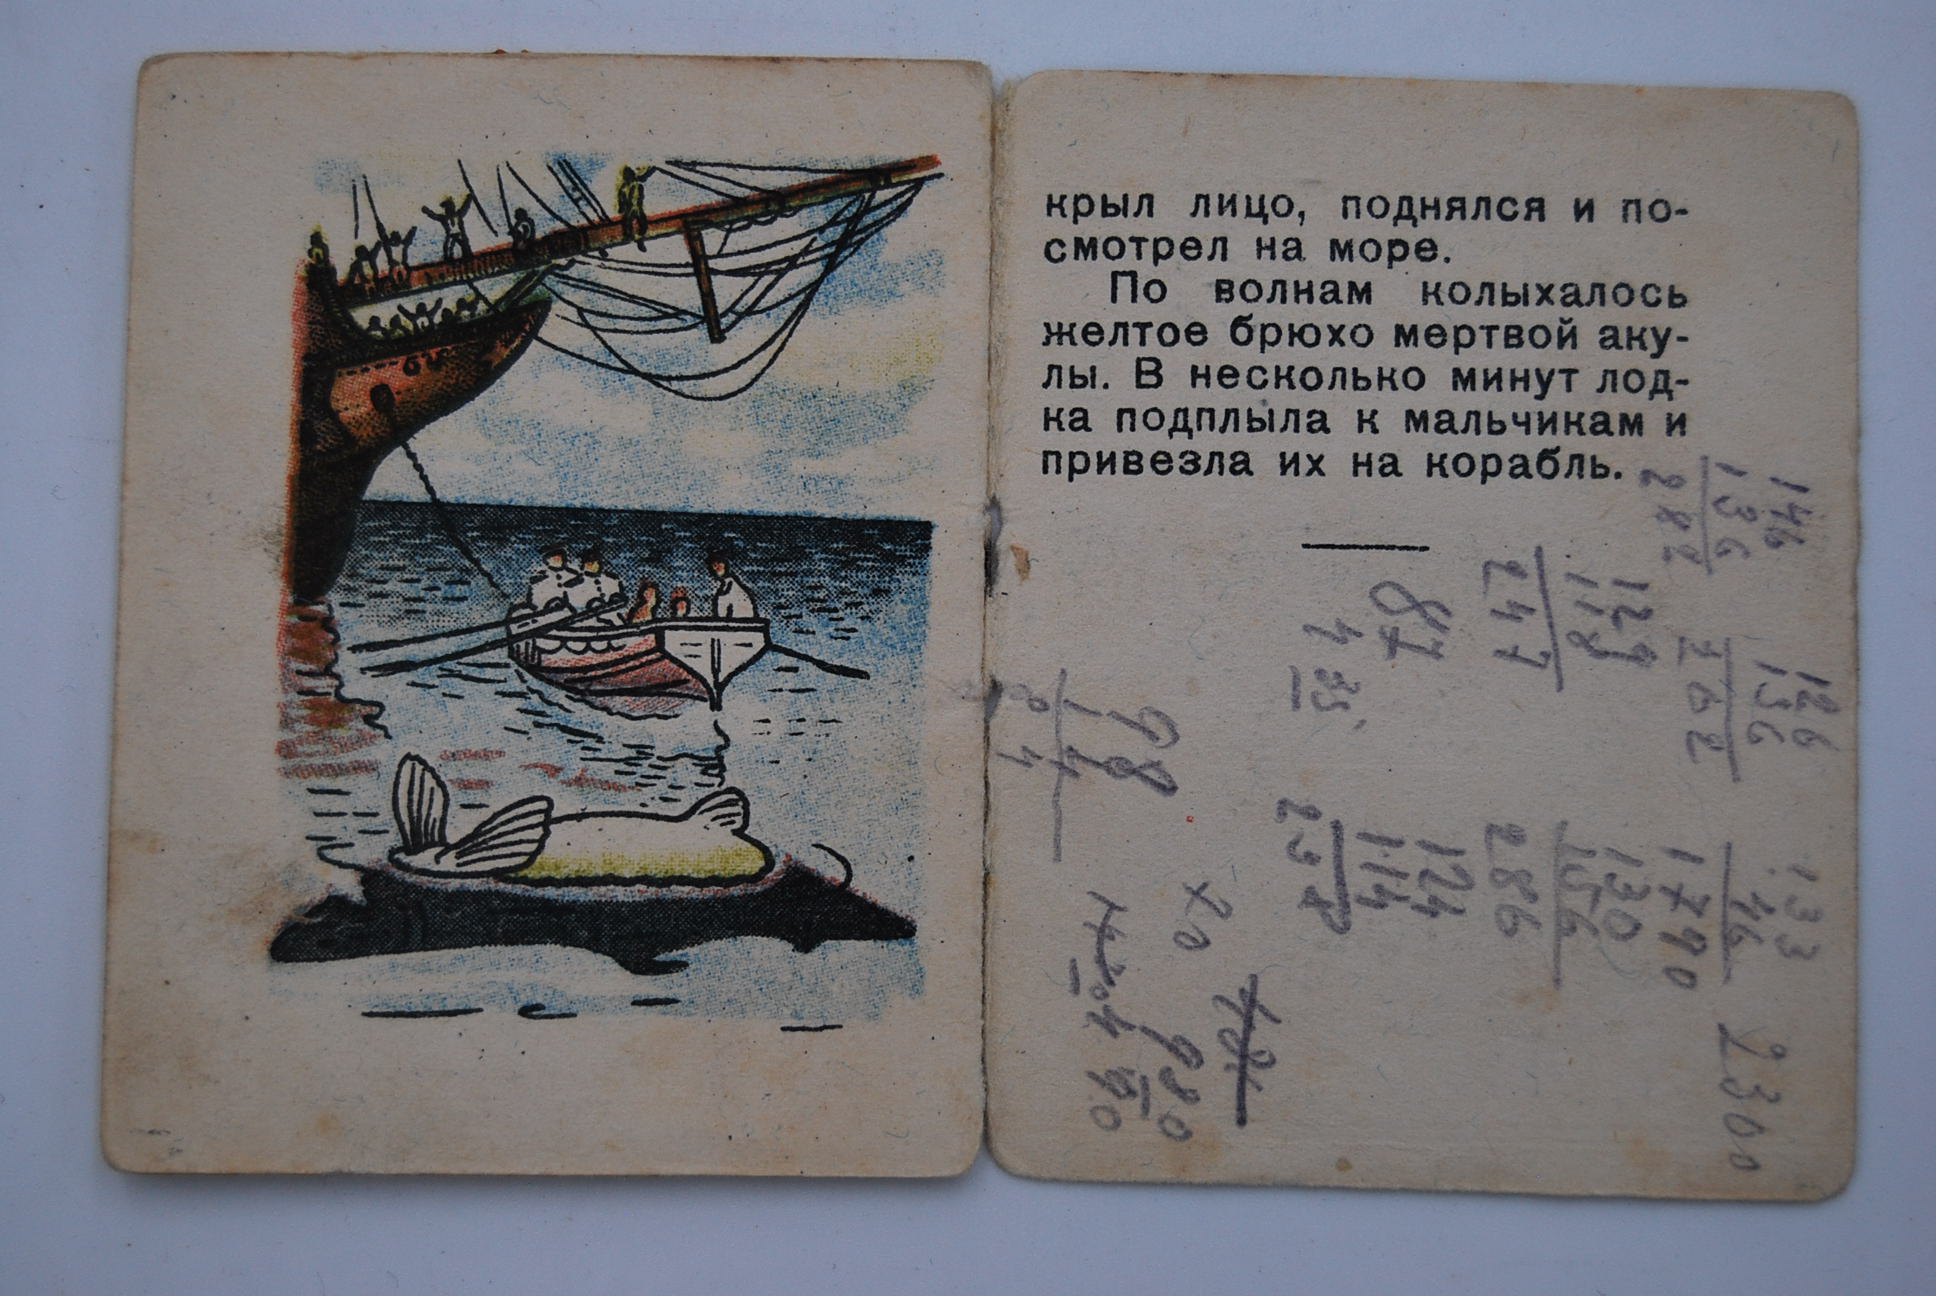 крыл лицо, поднялся и по-
смотрел на море.
По волнам колыхалось
желтое брюхо мертвой аку-
лы. В несколько минут лод-
ка подплыла к мальчикам и
привезла их на корабль.
146
136
282
129
118
247
87
126
136
262
98
133
46
1790
130
156
286
124
114
70
980
2300